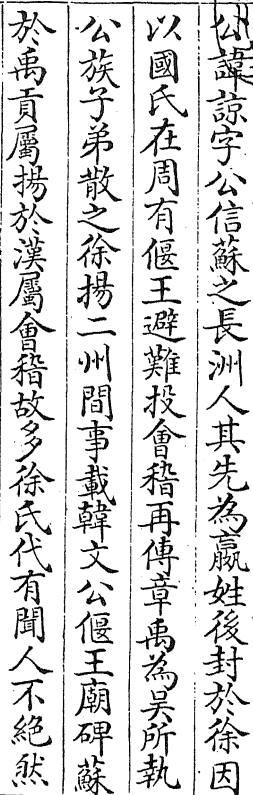 公諱諒字公信蘇之長洲人其先為嬴姓後封於徐因
以國氏在周有偃王避難投會稽再傳章禹為吳所執
公族子弟散之徐揚二州間事載韓文公偃王廟碑蘇
於禹貢屬揚於漢屬會稽故多徐氏代有聞人不絕然